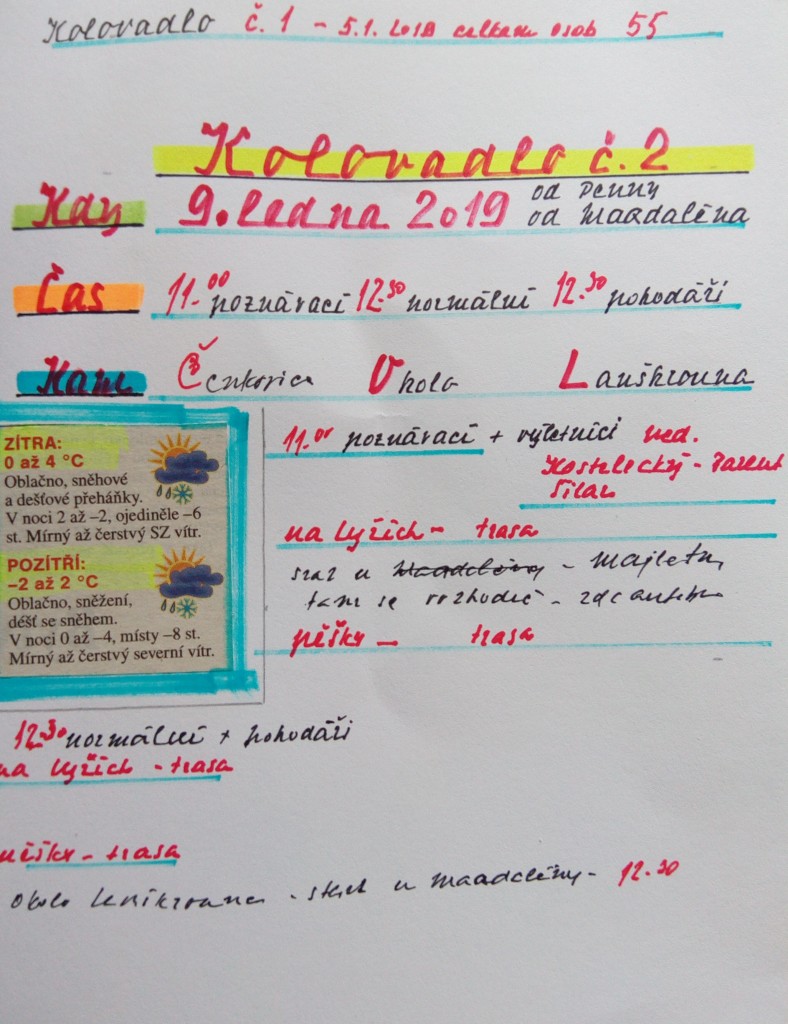 Kolovadlo č. 1 - 5.1. 2018 celkem osob 55
Kolovadlo č. 2
Kdy 9. ledna 2019 od Penny
od Magdaléna
Čas 11.00 poznávací 12.30 normální 12.30 pohodáři
Kam Čenkovice Okolo Lanškrouna
11.00 poznávací + výletníci ved.
Kostelecký -
Silar
na lyžích - trasa
sraz u - 
tam se -
pěšky - trasa
ZÍTRA:
0 až 4 °C
Oblačno, sněhové
a dešťové přeháňky.
V noci 2 až –2, ojediněle –6
st. Mírný až čerstvý SZ vítr.
POZÍTŘÍ:
–2 až 2 °C
Oblačno, sněžení,
déšť se sněhem.
V noci 0 až –4, místy –8 st.
Mírný až čerstvý severní vítr.
12.30 normální + pohodáři
na lyžích - trasa
pěšky - trasa
okolo Lanškrouna - u Magdalény - 12.30